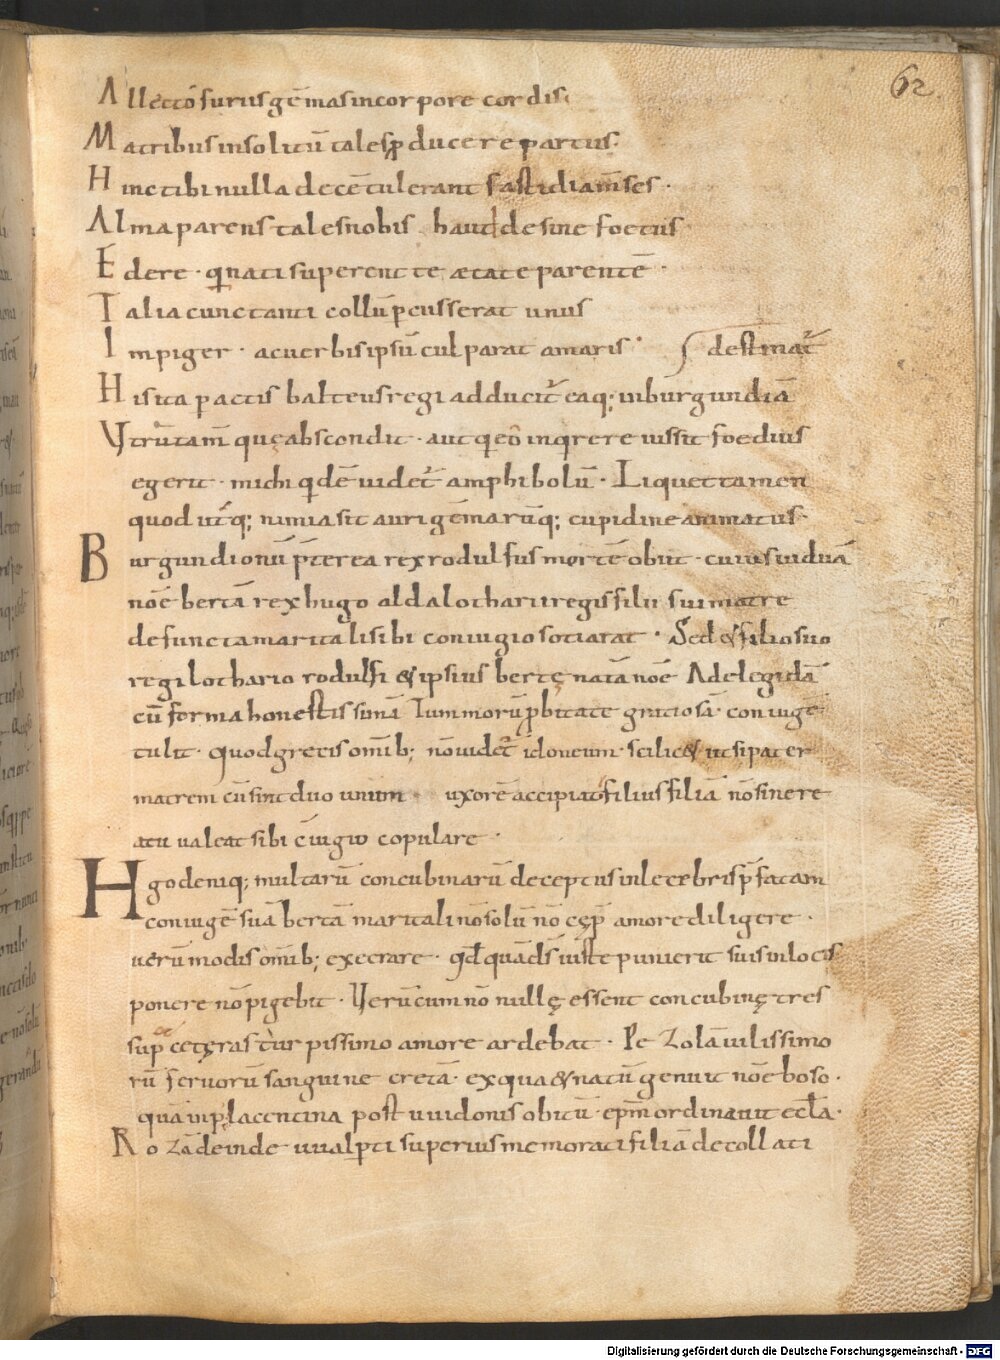 62
Allecto furus gēmas in corpore cordis
Matribus insolitū tales ꝓducere partus.
Hinc tibi nulla decē tulerant fastidia mses.
Alma parens tales nobis haud desine foetus
Edere. qn nati superent te ætate parentē.
Talia cunctanti collū ꝑcusserat unus
Impiger. ac uerbis ipsū culparat amaris. destinat᷑
His ita pactis balteus regi adducit᷑ eaq; in burgundiā
Vtrū tam̄ quę abscondit. aut q eō inqrere iussit foedius
egerit. michi qdē uidet᷑ amphibolū. Liquet tamen
quod ut̄q; nimia sit auri gēmarūq; cupidine animatus.
Burgundionū p̄terea rex rodulfus mortē obiit. cuius uiduā
nōe bertā rex hugo alda lotharii regis filii sui matre
defuncta maritali sibi coniugio sotiarat. Sed & filio suo
regi lothario rodulfi & ipsius bertę natā nōe Adelegidā
cū forma honestissimā tum morū ꝓbitate gratiosā coniuge
tulit. quod grecis om̄ib; nō uidet᷑ idoneum. scilic& ut si pater
matrem cū sint duo unum uxorē accipiat filius filiā nō sine re
atu ualeat sibi cīugio copulare.
Hgo deniq; multarū concubinarū deceptus inlecebris p̄fatam
coniugē suā bertā maritali nō solū nō cęp amore diligere.
uerū modis om̄ib; execrare. qd quā d̄s iuste punierit suis in locis
ponere nō pigebit. Verū cum nō nullę essent concubinę tres
sup cetęras turpissimo amore ardebat. Pezolā uilissimo
rū seruorū sanguine cretā. ex qua & natū genuit nōe boso.
quā in placentina post uuidonis obitū epm̄ ordinauit eccl̄a.
Rozā deinde uualꝑti superius memorati filiā decollati
Digitalisierung gefördert durch die Deutsche Forschungsgemeinschaft - DFG